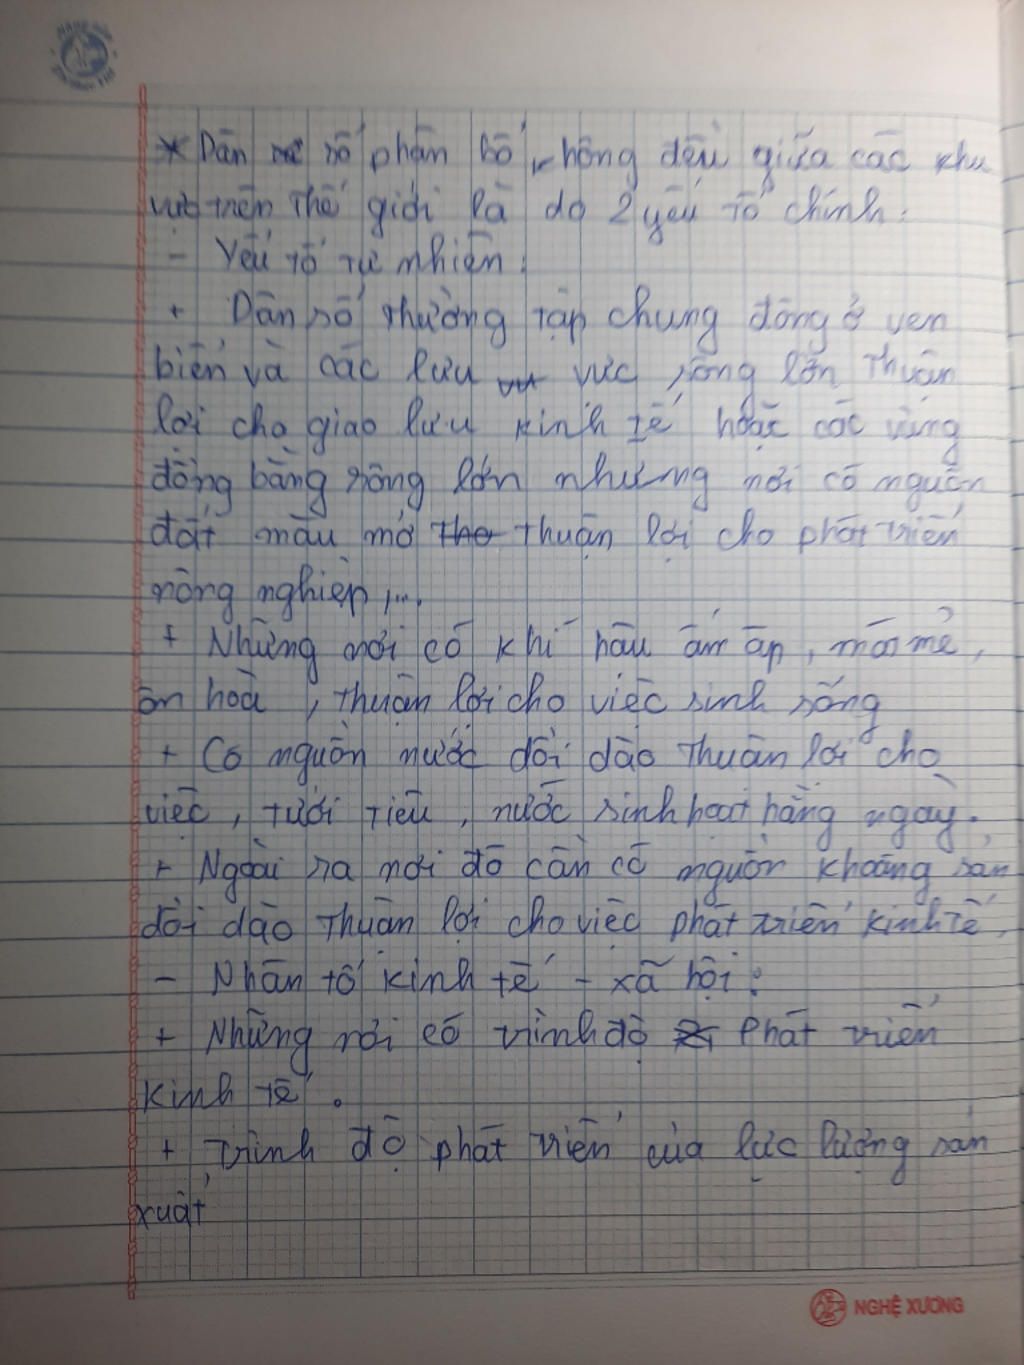 * Dân số phân bố không đều giữa các khu
vực trên thế giới là do 2 yếu tố chính:
- Yếu tố tự nhiên:
+ Dân số thường tập chung đông ở ven
biển và các lưu vực sông lớn thuận
lợi cho giao lưu kinh tế hoặc các vùng
đồng bằng sông lớn những nơi có nguồn
đất màu mỡ thuận lợi cho phát triển
nông nghiệp,...
+ Những nơi có khí hậu ấm áp, mát mẻ,
ôn hoà, thuận lợi cho việc sinh sống
+ Có nguồn nước dồi dào thuận lợi cho
việc, tưới tiêu, nước sinh hoạt hằng ngày.
+ Ngoài ra nơi đó cần có nguồn khoáng sản
dồi dào thuận lợi cho việc phát triển kinh tế.
- Nhân tố kinh tế - xã hội:
+ Những nơi có trình độ phát triển
kinh tế.
+ trình độ phát triển của lực lượng sản
xuất
NGHỆ XƯƠNG